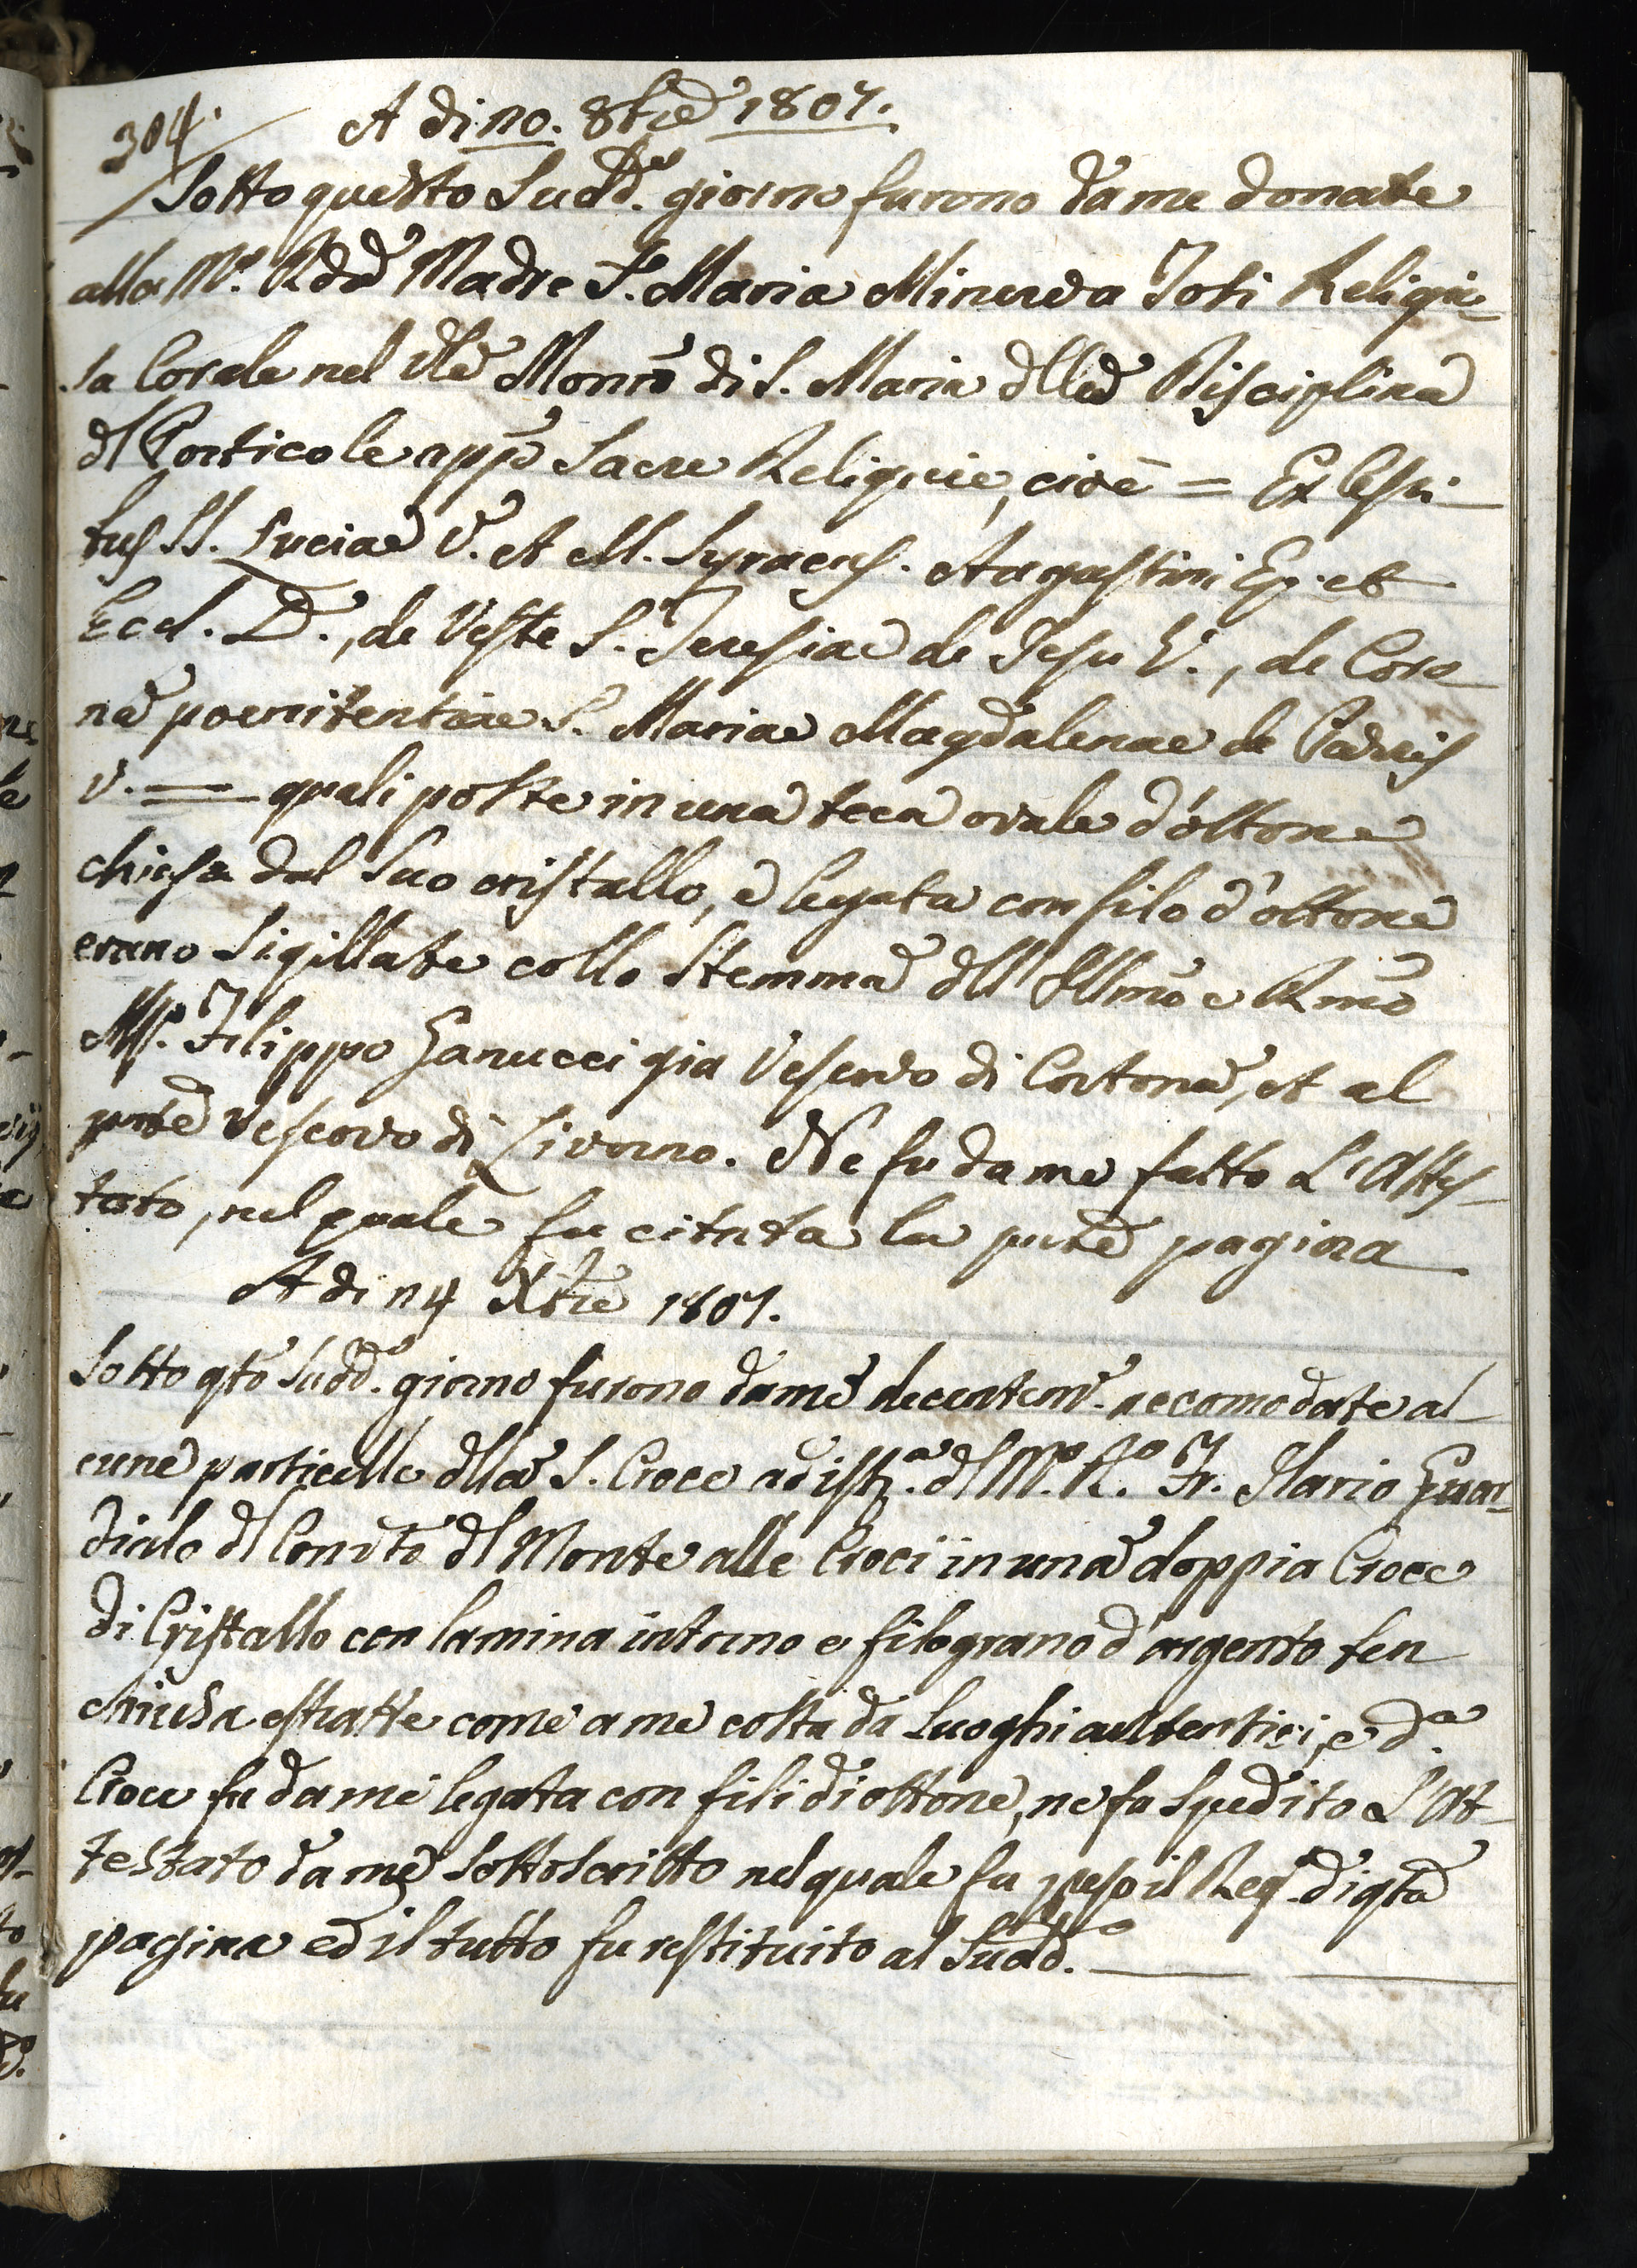 304.
A di 10. 8bre 1807.
Sotto questo Sudd.º giorno furono da me donate
alla Mº. Rdã Madre S. Maria Minerva Toti Religio=
sa Corale nel Vle Monrò di S. Maria dlla Disciplina
dl Porticole app.e Sacre Reliquie, cioè = Ex Ossi-
bus SS. Luciae V. et M. Syracus. Augustini Ep. et
Eccl. D., de Veste S. Teresiae de Jesu V., de Coro
na poenitentiae S. Mariae Magdalenae de Pazzis
V. = quali poste in una teca ovale d'ottone
chiusa dal Suo cristallo, e legata con filo d'ottone
erano Sigillate collo Stemma dll' Illmo e Rmo
Mr. Filippo Ganucci gia Vescovo di Cortona, et al
pnte Vescovo di Livorno. Ne fu da me fatto L'Attes-
tato, nel quale fu citata la pnte pagina
A di 14 Xbre 1807.
Sotto qto Sudd.º giorno furono da me decentem.e accomodate al
cune particelle dlla S. Croce ad istz.a dl M.º R.º Fr. Ilario Guar=
diale dl Convto dl Monte alle Croci in una doppia Croce
di Cristallo con lamina intorno e filograno d'argento ben
chiusa estratte come a me costa da Luoghi autentici, e d.a
Croce fu da me legata con fili di ottone, ne fu Spedito L'At-
testato da me Sottoscritto nel quale fu preso il Reg.º di qta
pagina ed il tutto fu restituito al Sudd.º